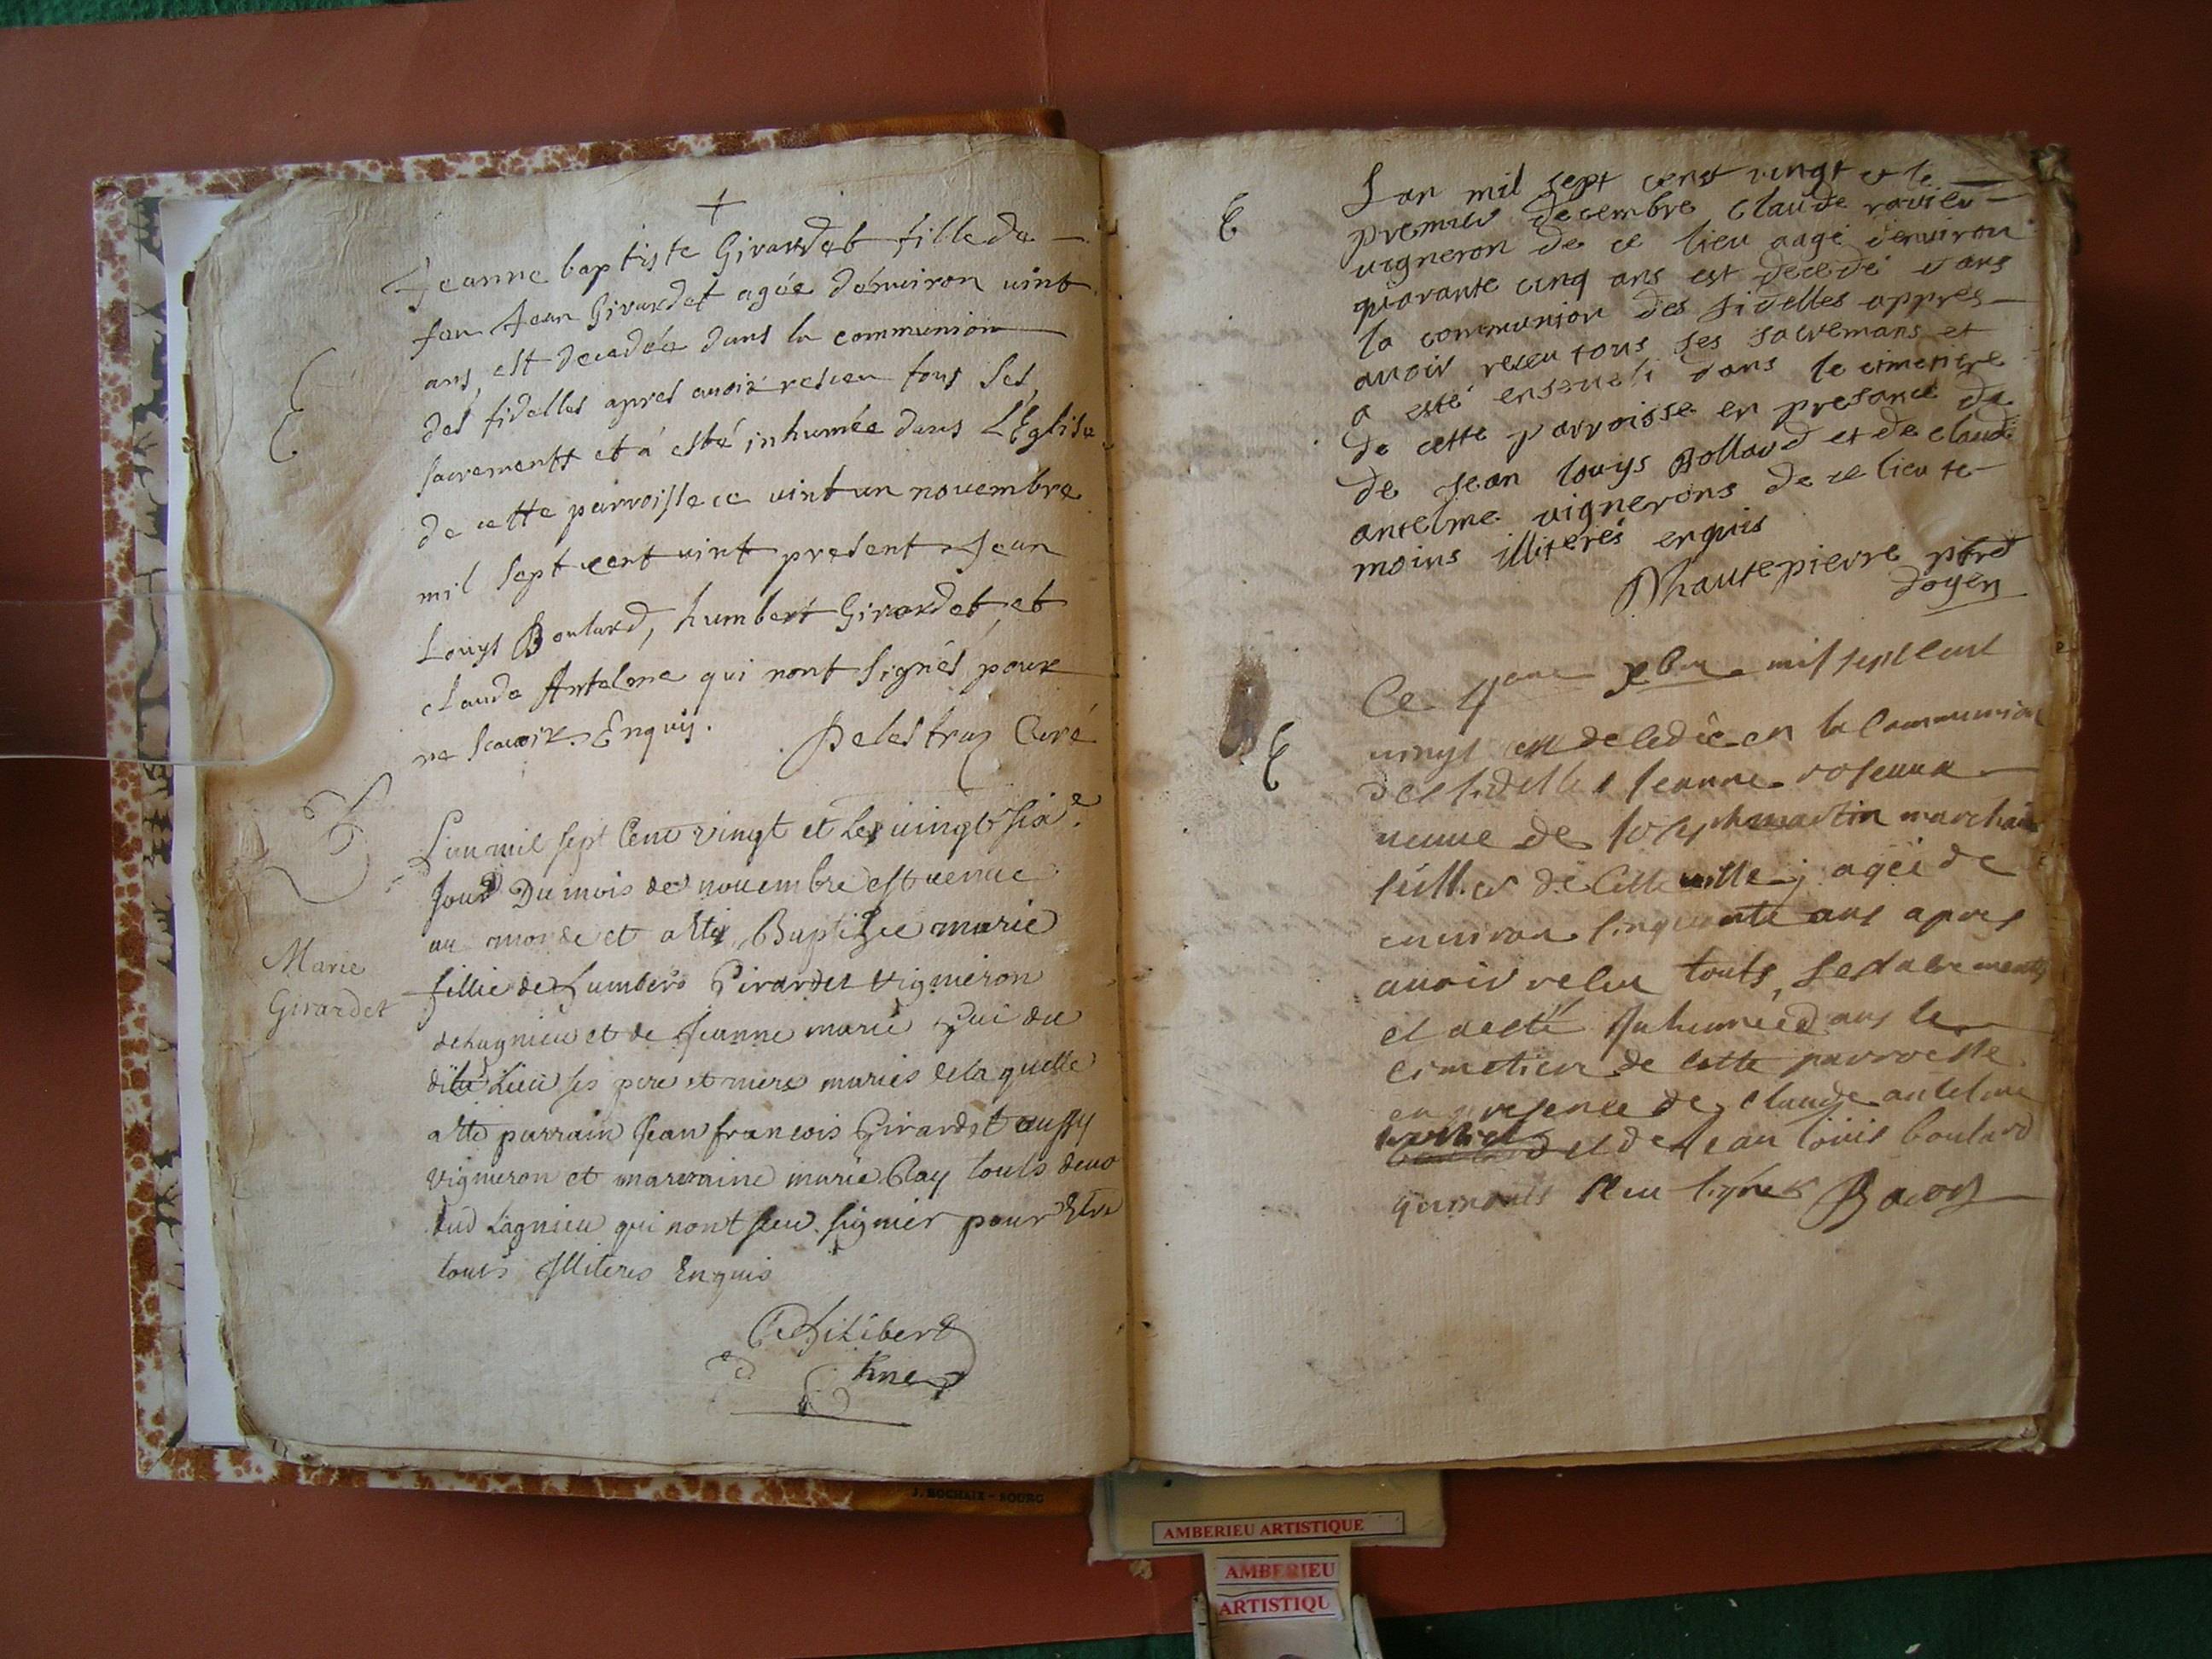 +
Jeanne baptiste Girardet fille de
feu Jean Girardet agée d'enuiron vint
ans, est decedée dans la communion
des fidelles apres auoir resceu tous ses
sacrements et a esté inhumée dans L'Eglise
de cette parroisse ce vint un nouembre
mil sept cent vint present Jean
Louys Boulard, humbert Girardet, et
claude Antelme qui nont signés pour
ne scauoir. Enquis.
Delestraz Curé
Marie
Girardet
L'an mil sept Cent vingt et le vingt six.e
Jour Du mois de nouembre est venue
au monde et a este Baptisee marie
fillie de humbert Girardet vigneron
de lagnieu et de Jeanne marie Gui du
dit Lieu ses pere et mere maries de laquelle
a este parrain Jean francois Girardet aussy
vigneron et marraine marie Ray touts deux
dud Lagnieu qui nont sceu signier pour Etre
touts Illiteres Enquis
Philibert
L'an mil sept cenct vingt et le
premier decembre claude ravier
vigneron de ce lieu aagé denviron
quarante cinq ans est decedé dans
la communion des fidelles appres
avoir receu tous ses sacremans et
a esté enseveli dans le cimetiere
de cette parroisse en presance de
de jean louys Bollard et de claude
antelme vignerons de ce lieu te-
moins illiterés enquis
Dhautepierre ptre
doyen
Ce 4eme xbre mil sept cent
vingt est decedée en la Communion
des fidelles Jeanne
veuue de Joseph martin marchand
de Cette ville agée de
enuiron sinquante ans apres
auoir receu touts ses sacrements
et a esté Inhumée dans le
cimetiere de cette parroisse
en presence de claude antelme
et de Jean louis boulard
qui nonts sceu signer
J. ROCHAIX - BOURG
AMBERIEU ARTISTIQUE
AMBERIEU
ARTISTIQU